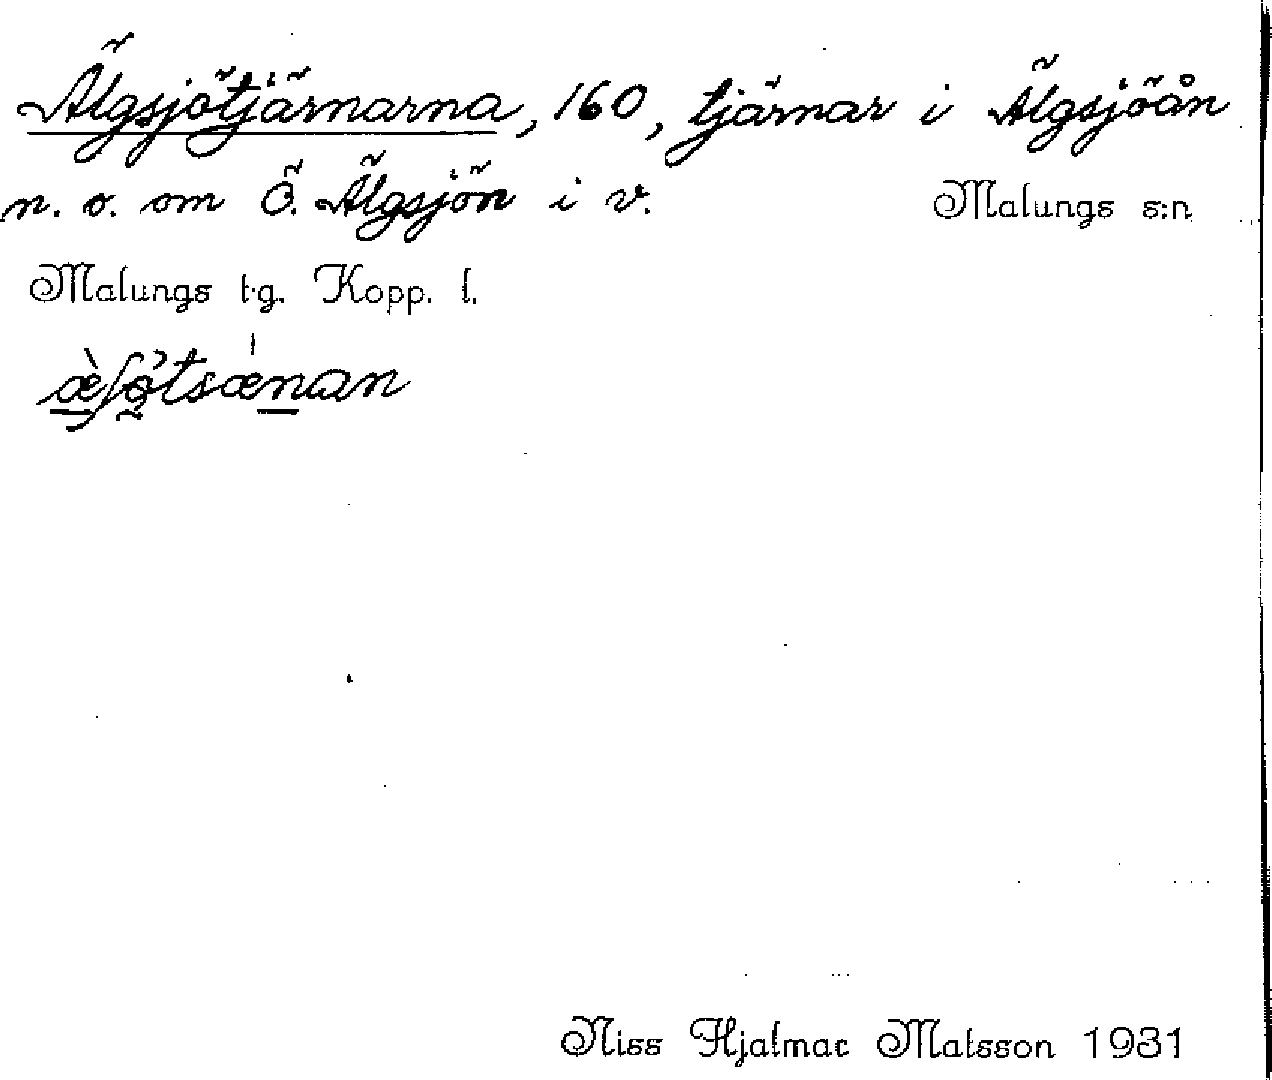 Älgsjötjärnarna, 160, tjärnar i Älgsjöån
n. o. om Ö. Älgsjön i v. Malungs s:n
Malungs tg. Kopp. l.
Niss Hjalmar Matsson 1931